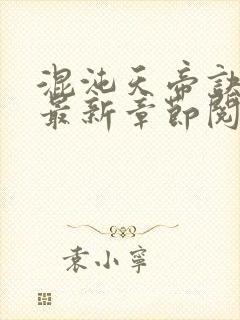 混沌天帝訣
最新章節閱
袁小寧